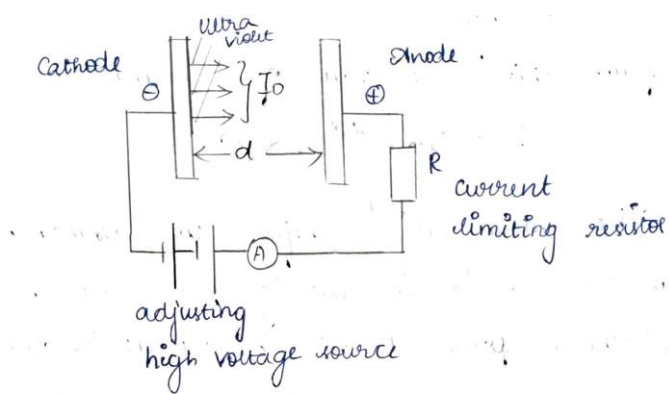 Ultra
violet
Cathode
Anode
⊖
I₀
⊕
d
R
current
limiting resistor
A
adjusting
high voltage source